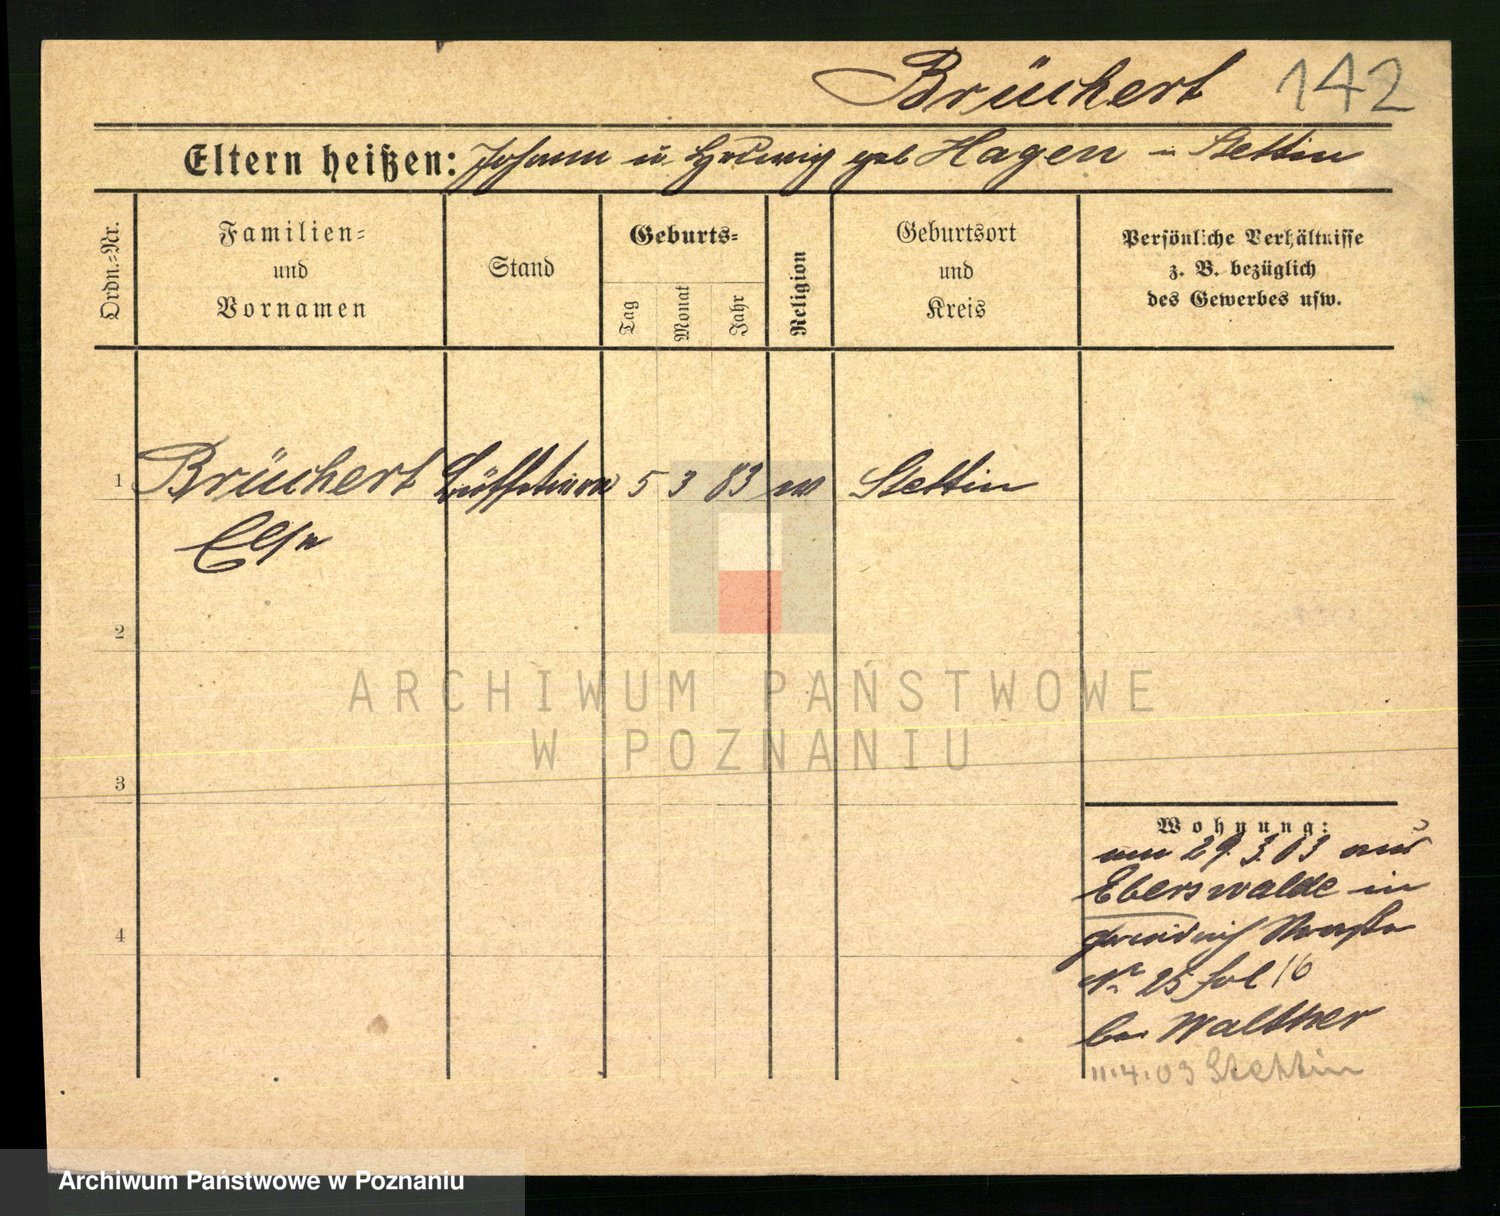 Brückert 142
Eltern heißen: Johann u. Hedwig geb Hagen in Stettin
Ordn.-Nr.
Familien-
und
Vornamen
Stand
Geburts-
Tag
Monat
Jahr
Religion
Geburtsort
und
Kreis
Persönliche Verhältnisse
z. B. bezüglich
des Gewerbes usw.
1 Brückert 5 3 83 Stettin
Else
2
ARCHIWUM PAŃSTWOWE
W POZNANIU
3
Wohnung:
29.3.03 aus
Eberswalde in
4
Straße
No 25 fol 16
bei Walther
11.4.03 Stettin
Archiwum Państwowe w Poznaniu